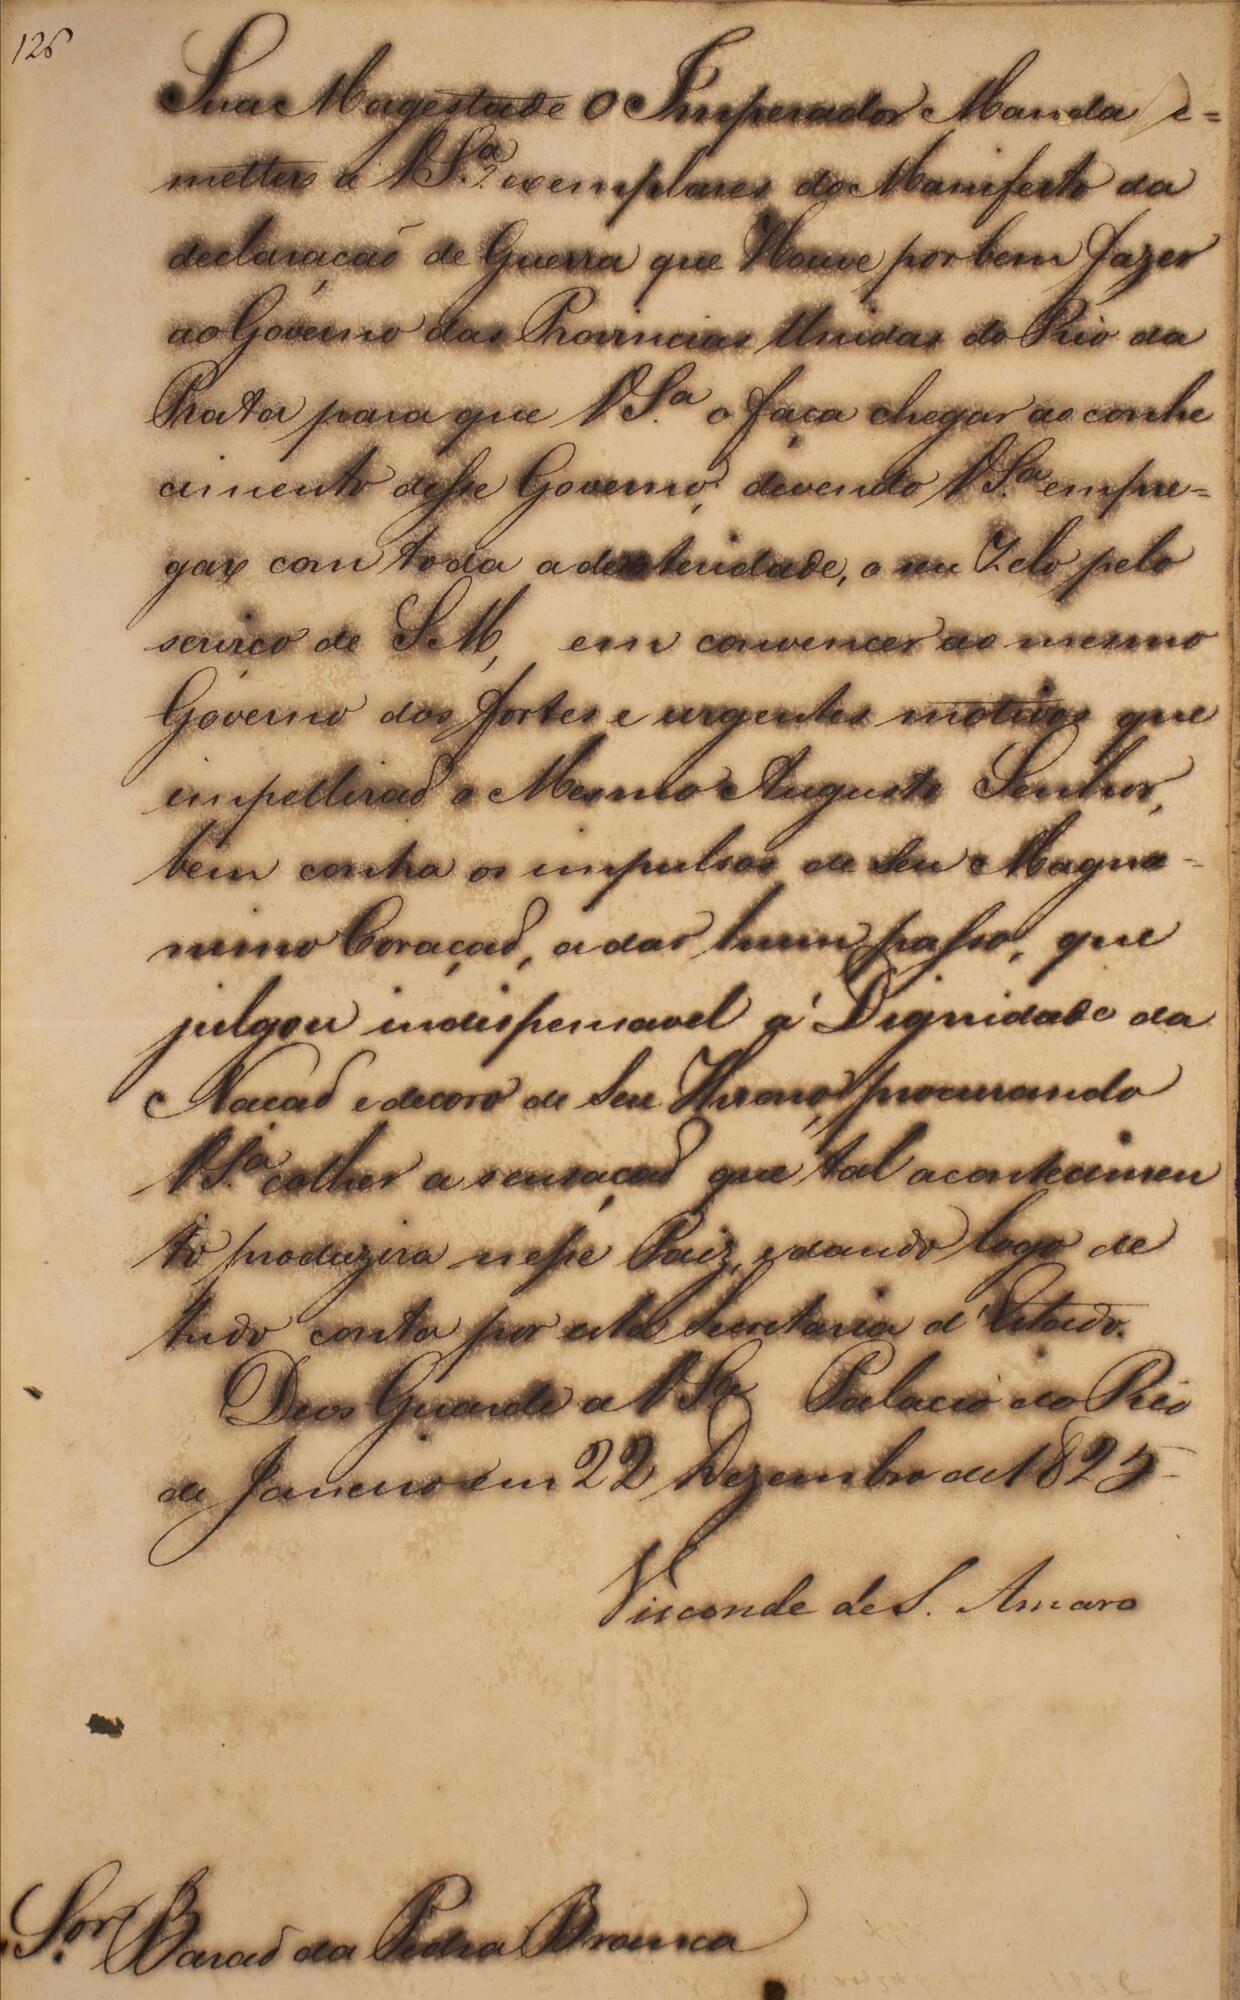 126
Sua Magestade O Imperador Manda re=
metter a V.S.ª 2 exemplares do Manifesto da
declaração de Guerra que Houve por bem fazer
ao Governo das Provincias Unidas do Rio da
Prata para que V.S.ª o faça chegar ao conhe
cimento desse Governo, devendo V.S.ª empre=
gar com toda a dexteridade, o seu Zelo pelo
serviço de S.M, em convencer ao mesmo
Governo dos fortes e urgentes motivos que
impellirão o Mesmo Augusto Senhor,
bem contra os impulsos de Seu Magna-
nimo Coração, a dar hum passo, que
julgou indispensavel á Dignidade da
Nação e decoro de Seu Throno, procurando
V.S.ª colher a sensação que tal acontecimen
to produzira nesse Paiz, e dando logo de
tudo conta por esta Secretaria d'Estado.
Deos Guarde a V.S.ª Palacio do Rio
de Janeiro em 22 Dezembro de 1825-
Visconde de S. Amaro
S.or Barão da Pedra Branca